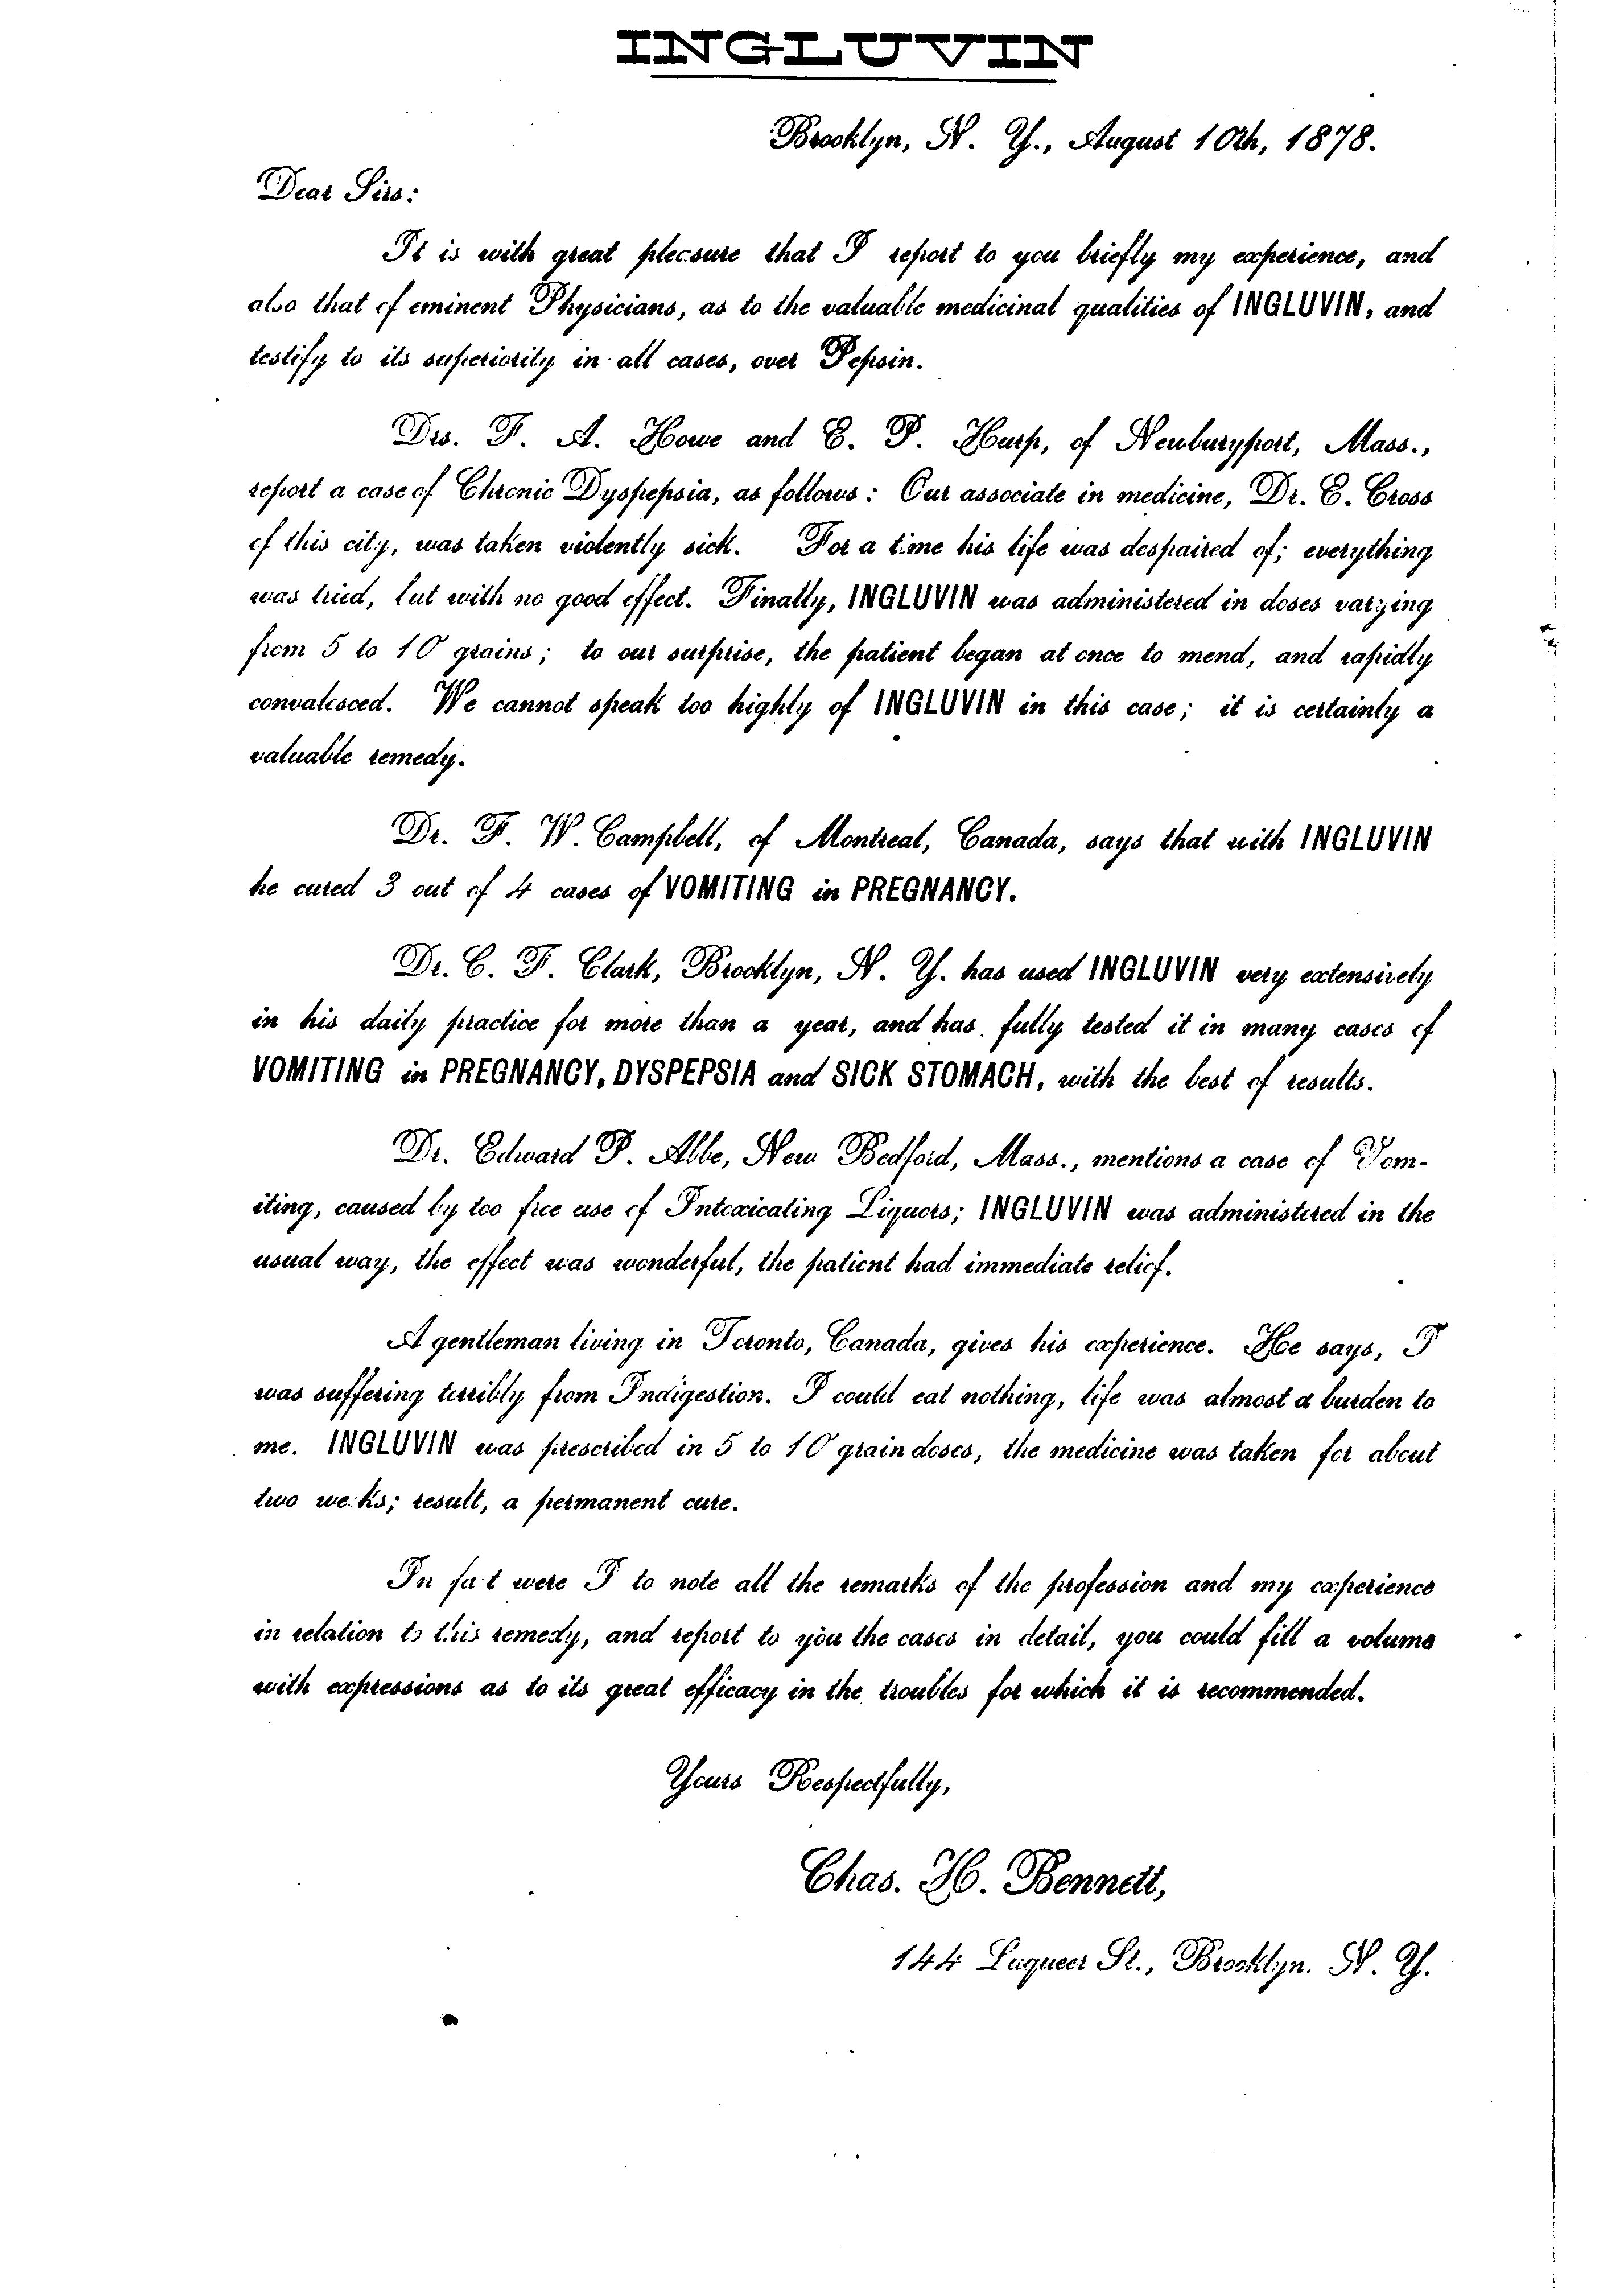 INGLUVIN
Brooklyn, N. Y., August 10th, 1878.
Dear Sirs:
It is with great pleasure that I report to you briefly my experience, and
also that of eminent Physicians, as to the valuable medicinal qualities of INGLUVIN, and
testify to its superiority in all cases, over Pepsin.
Drs. F. A. Howe and E. P. Hurp, of Newburyport, Mass.,
report a case of Chronic Dyspepsia, as follows: Our associate in medicine, Dr. E. Cross
of this city, was taken violently sick. For a time his life was despaired of; everything
was tried, but with no good effect. Finally, INGLUVIN was administered in doses varying
from 5 to 10 grains; to our surprise, the patient began at once to mend, and rapidly
convalesced. We cannot speak too highly of INGLUVIN in this case; it is certainly a
valuable remedy.
Dr. F. W. Campbell, of Montreal, Canada, says that with INGLUVIN
he cured 3 out of 4 cases of VOMITING in PREGNANCY.
Dr. C. F. Clark, Brooklyn, N. Y. has used INGLUVIN very extensively
in his daily practice for more than a year, and has fully tested it in many cases of
VOMITING in PREGNANCY, DYSPEPSIA and SICK STOMACH, with the best of results.
Dr. Edward P. Abbe, New Bedford, Mass., mentions a case of Vom-
iting, caused by too free use of Intoxicating Liquors; INGLUVIN was administered in the
usual way, the effect was wonderful, the patient had immediate relief.
A gentleman living in Toronto, Canada, gives his experience. He says, I
was suffering terribly from Indigestion. I could eat nothing, life was almost a burden to
me. INGLUVIN was prescribed in 5 to 10 grain doses, the medicine was taken for about
two weeks; result, a permanent cure.
In fact were I to note all the remarks of the profession and my experience
in relation to this remedy, and report to you the cases in detail, you could fill a volume
with expressions as to its great efficacy in the troubles for which it is recommended.
Yours Respectfully,
Chas. H. Bennett,
144 Luqueer St., Brooklyn. N. Y.